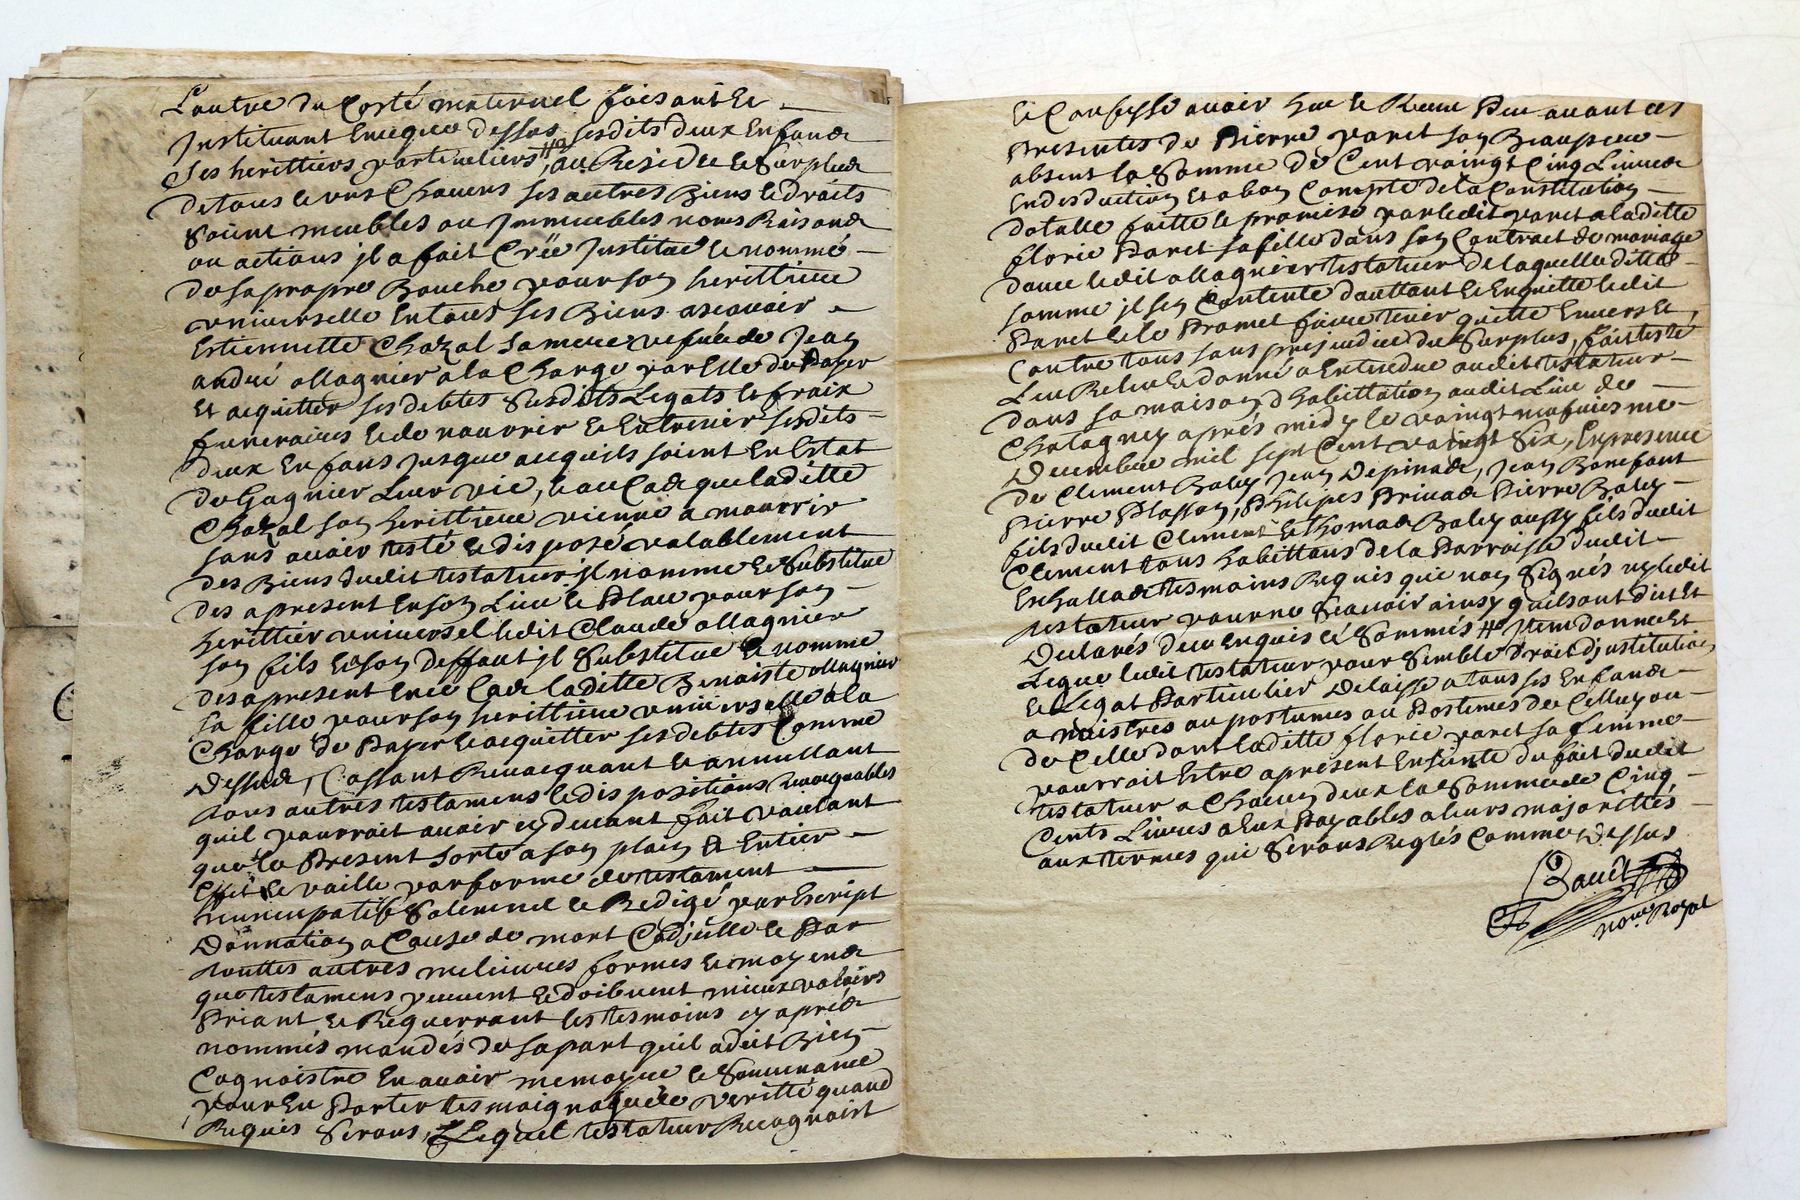 L'autre du Costé maternel faisant et
Instituant Enicquo dessus sesdits deux Enfands
Ses herittiers particuliers, au Residu et Surplus
de tous et uns Chacuns ses autres Biens et droits
Soient meubles ou Immeubles noms Raisons
ou actions jl a fait Créé Institué et nommé
de sa propre Bouche pour son herittiere
universelle En tous ses Biens ascavoir
Estiennette Chazal sa mere vefue de Jean
André allagnier a la Charge par Elle de Payer
Et acquitter ses debtes Susdits Legats et fraix
funeraires et de nourrir et Entrenir sesdits
deux Enfans jusque acequils soient En Estat
de Gagnier Leur vie, et au Cas que laditte
Chazal son herittiere vienne a mourrir
sans avoir testé et disposé valablement
des Biens dudit testateur jl nomme et Substitue
des apresent En son Lieu et Place pour son
herittier universel ledit Claude allagnier
son fils Et a son deffaut jl Substitue et nomme
des apresent En ce Cas laditte Benoiste allagnier
sa fille pour son herittiere universelle a la
Charge de Payer et acquitter ses debtes Comme
dessus, Cassant Revacquant et annullant
tous autres testamens et dispositions revocquables
quil pourroit avoir cy devant fait voulant
que le Present sorte a son plain Et Entier
Effet et vaille par forme de testament
nuncupatif Solemnel et Redigé par Escript
Donnation a Cause de mort Codjcille et Par
touttes autres melieures formes et moyends
que testamens peuvent et doibvent mieux valoirs
Priant et Requerrant les tesmoins cy aprés
nommés mandés de sa part quil a dit Bien
Cognoistre En avoir memoyre et Souvenance
pour En Porter tesmoignage de veritté quand
Requis Serons, Lequel testateur Recognoist
Et Confesse avoir heu et Receu Par avant ces
Presentes de Pierre paret son Beaupere
absent la Somme de Cent vaingt Cinq Livres
En desduction Et a bon Compte de la Constitution
dotalle faitte et promise par ledit paret a laditte
florie Paret sa fille dans son Contract de mariage
avec ledit allagnier testateur de laquelle ditte
somme jl sen Contente dauttant En quitte ledit
Paret et le Promet faire tenir quitte Envers Et
Contre tous sans prejudice du Surplus, fait testé
Leu Releu et donné a Entendre audit testateur
dans sa maison d'habittation audit Lieu de
Chatagney aprés midy le vaingt neufuiesme
Decembre mil sept Cent vaingt Six, En presence
de Clement Baley Jean Depinade, Jean Bonefant
Pierre Plasson, Philipes Privade Pierre Baley
fils dudit Clement et thomas Baley aussy fils dudit
Clement tous habittans de la Parroisse dudit
tesmoins Requis qui non Signés ny ledit
testateur pour ne Scavoir ainsy quils ont dit Et
Declarés deuement enquis et Sommés Item donne Et
Legue ledit testateur pour Semble droit d'jnstitution
et Legat Particulier delaisse a tous ses Enfands
a naistres ou postumes ou Postemes de Celluy ou
de Celle dont laditte florie paret sa femme
pourroit Estre apresent Enseinte du fait dudit
testateur a Chacun deux la Somme de Cinq
Cents Livres a Eux Payables a leurs majorittés
aux termes qui Serons Reglés Comme Dessus
nore Royal